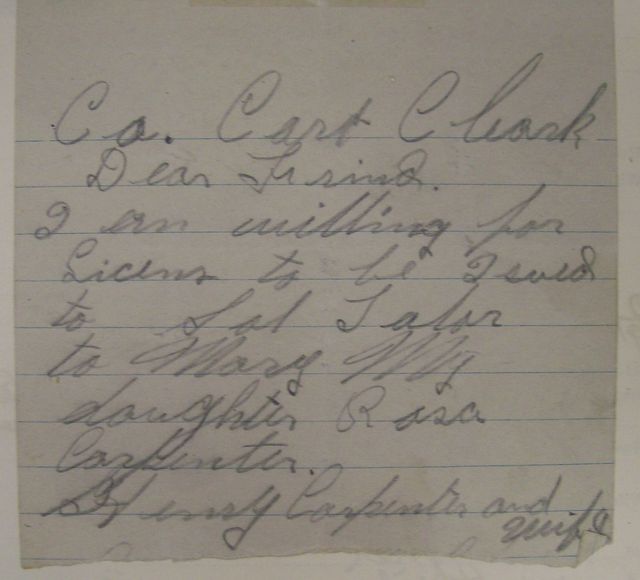 Co. Cort Clark
Dear Frind.
I am willing for
Licens to be Isued
to Sol Talor
to Mary My
daughter Rosa
Carpenter.
Henry Carpenter and
wife